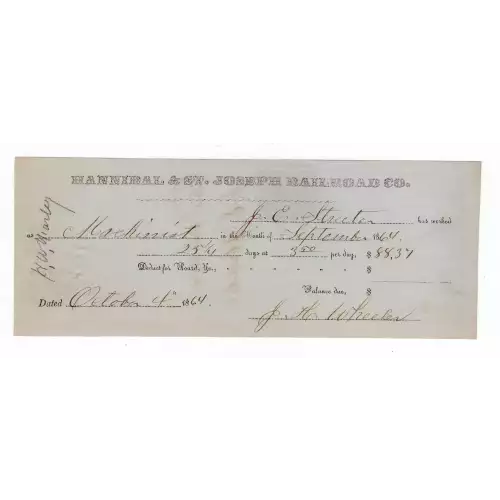 HANNIBAL & ST. JOSEPH RAILROAD CO.
J. E. Streeter has worked
as Machinist in the Month of September 1864.
25¼ days at 3.50 per day, $ 88,37
Deduct for Board, &c., $
Balance due, $
Dated October 4" 1864.
J. H. Wheeler